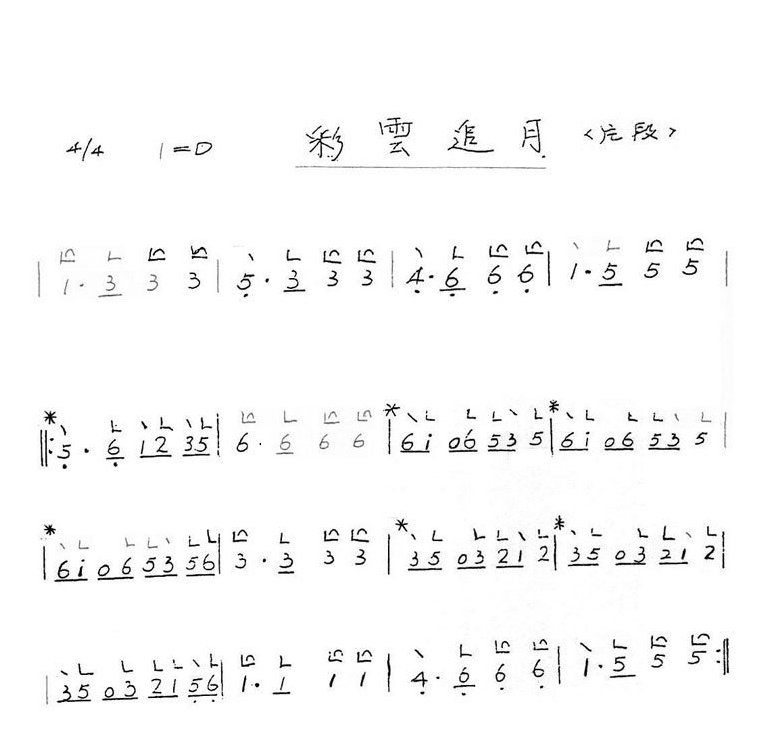 4/4 1=D 彩雲追月 <片段>
| 1· 3 3 3 | 5· 3 3 3 | 4· 6 6 6 | 1· 5 5 5 |
‖: 5· 6 12 35 | 6· 6 6 6 | 6i 06 53 5 | 6i 06 53 5 |
| 6i 06 53 56 | 3· 3 3 3 | 35 03 21 2 | 35 03 21 2 |
| 35 03 21 56 | 1· 1 1 1 | 4· 6 6 6 | 1· 5 5 5 :‖